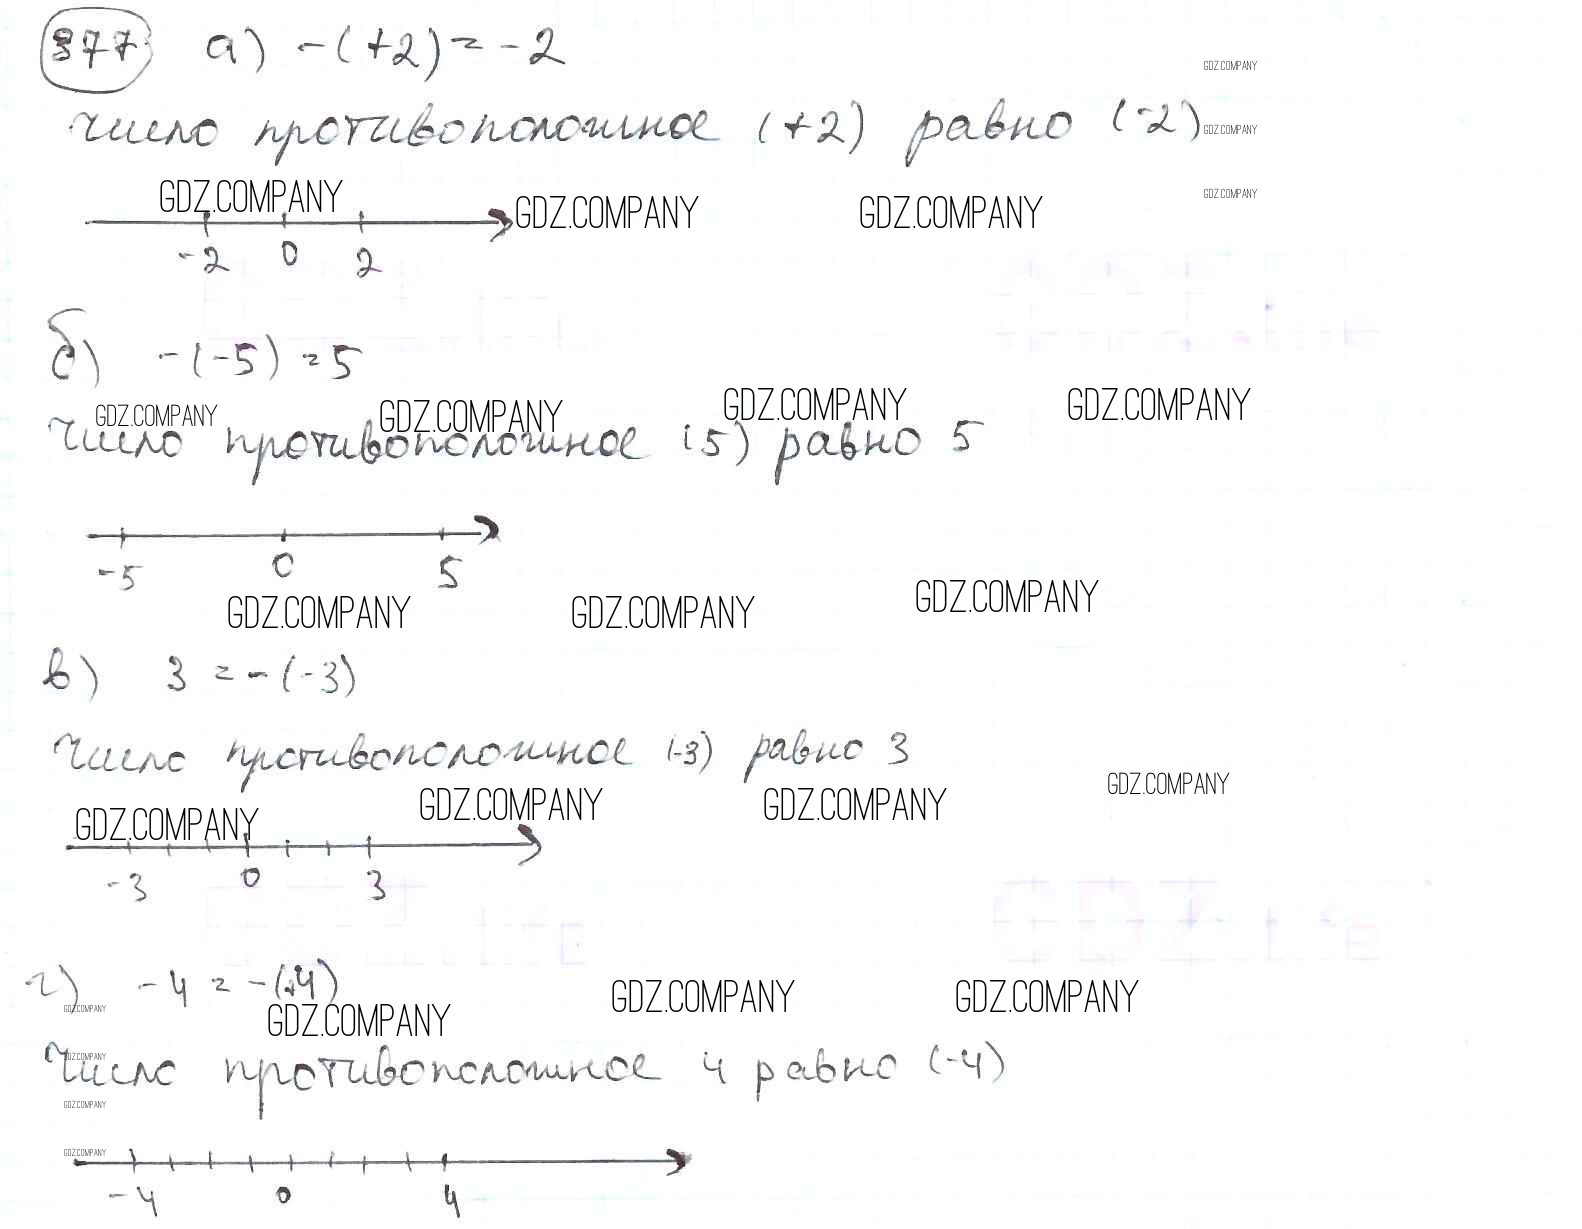 377 а) -(+2) = -2
GDZ.COMPANY
число противоположное (+2) равно (-2)
GDZ.COMPANY
GDZ.COMPANY GDZ.COMPANY GDZ.COMPANY GDZ.COMPANY
-2 0 2
б) -(-5) = 5
GDZ.COMPANY GDZ.COMPANY GDZ.COMPANY GDZ.COMPANY
Число противоположное (5) равно 5
-5 0 5
GDZ.COMPANY GDZ.COMPANY GDZ.COMPANY
в) 3 = -(-3)
Число противоположное (-3) равно 3
GDZ.COMPANY GDZ.COMPANY GDZ.COMPANY GDZ.COMPANY
-3 0 3
г) -4 = -(+4)
GDZ.COMPANY GDZ.COMPANY GDZ.COMPANY GDZ.COMPANY
GDZ.COMPANY
Число противоположное 4 равно (-4)
GDZ.COMPANY
GDZ.COMPANY
-4 0 4